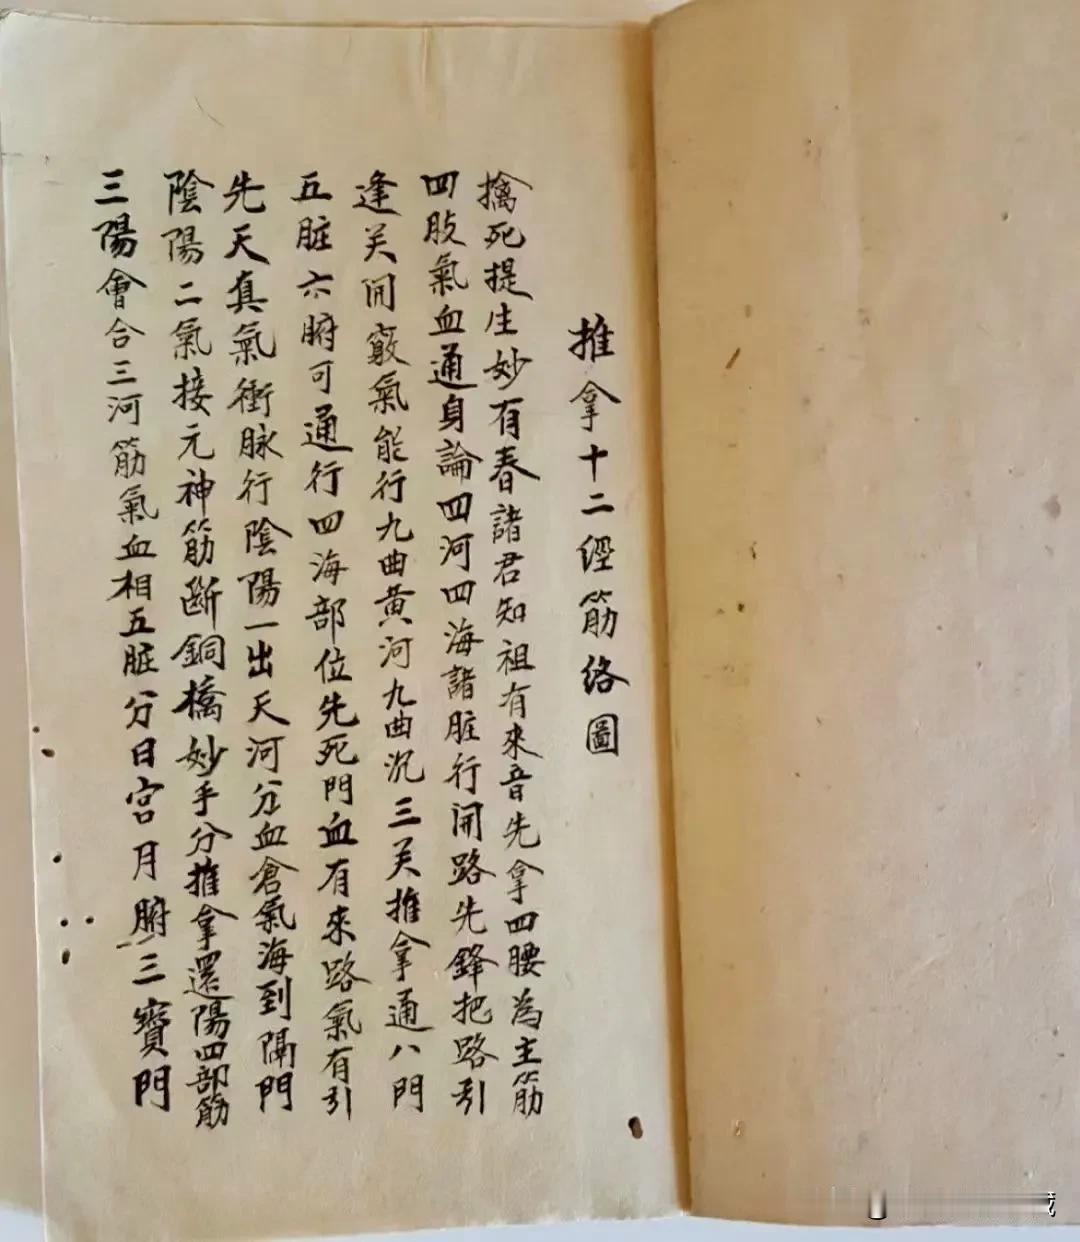 推拿十二經筋络圖
擒死提生妙有春諸君知祖有來音先拿四腰為主筋
四肢氣血通身論四河四海諸脏行開路先鋒把路引
逢关開竅氣能行九曲黄河九曲沉三关推拿通八門
五脏六腑可通行四海部位先死門血有來路氣有引
先天真氣衝脉行陰陽一出天河分血倉氣海到隔門
陰陽二氣接元神筋断銅橋妙手分推拿還陽四部筋
三陽會合三河筋氣血相五脏分日宮月腑三寶門
藏